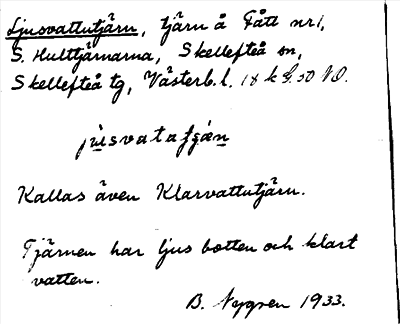 Ljusvattutjärn, tjärn å Fäll nr 1,
S. Hulttjärnarna, Skellefteå sn,
Skellefteå tg, Västerb. l. 18 k S. 50 NO.
jʉsvatafgæn
Kallas även Klarvattutjärn.
Tjärnen har ljus botten och klart
vatten.
B. Nygren 1933.